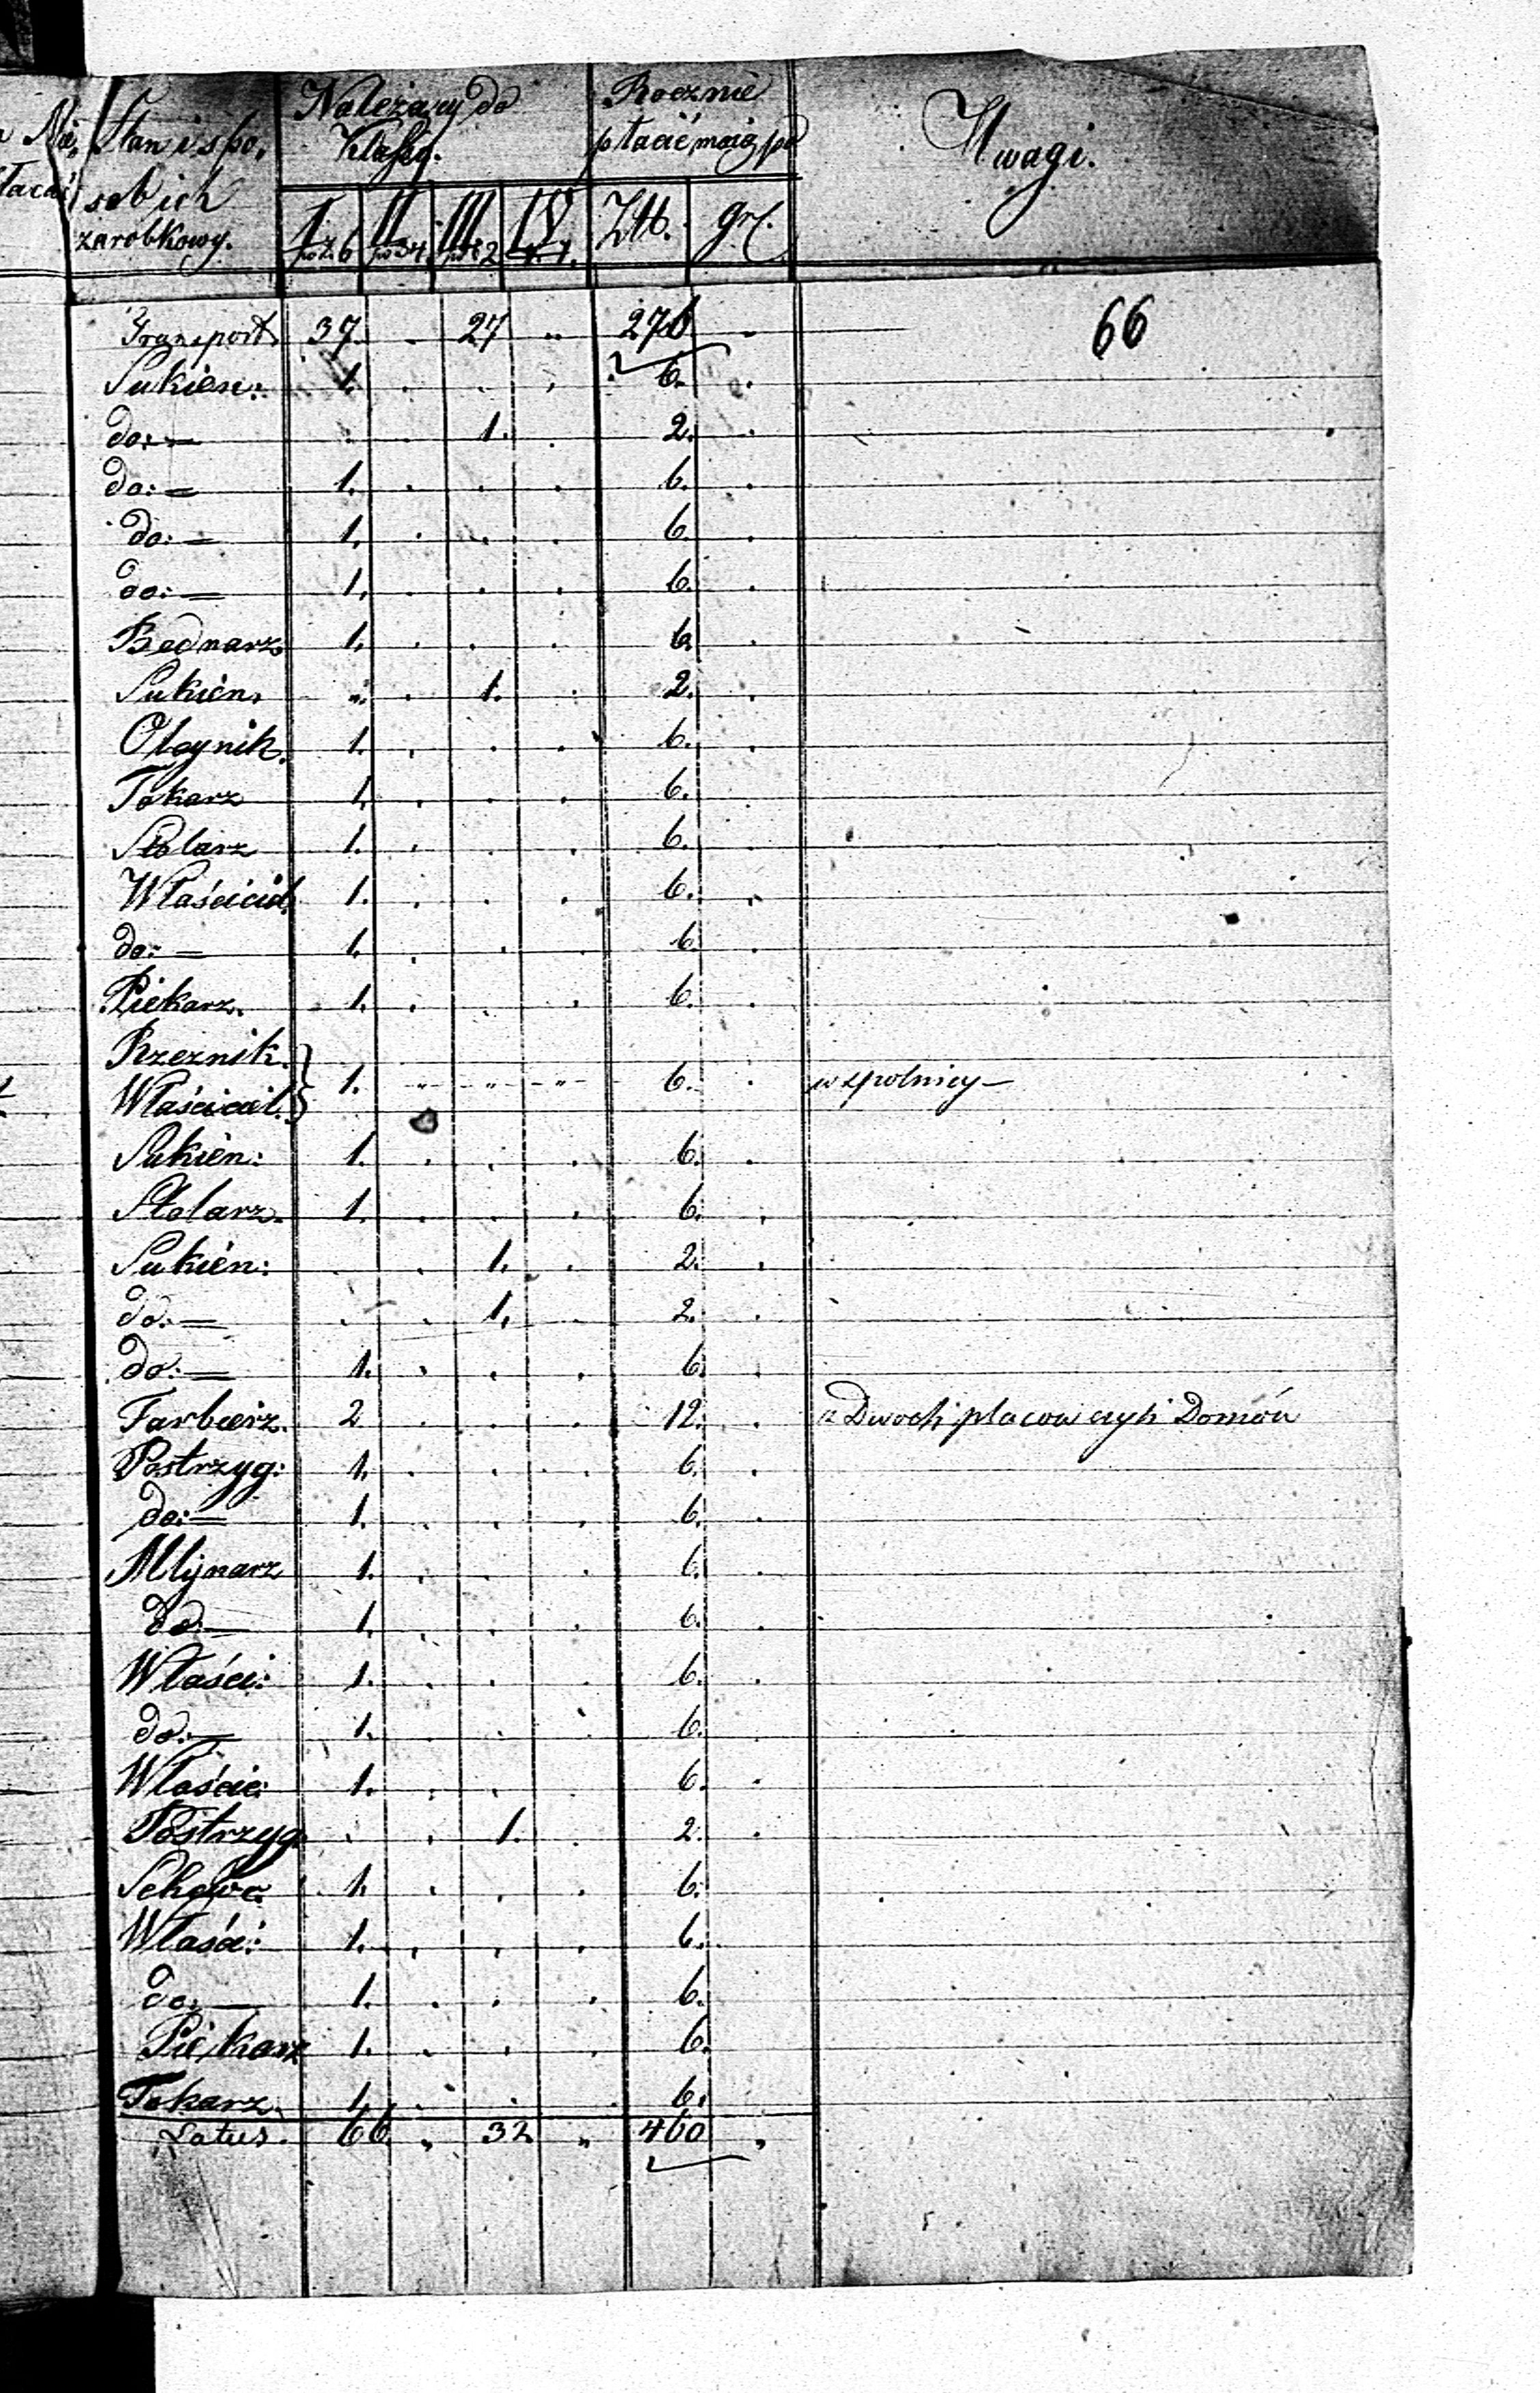 Należący do
Klassy.
Rocznie
płacić maią po
Uwagi.
Stan i spo,
sób ich
zarobkowy.
I II III IV Złt. gr.
po z. 6 po 3 4 po z 2
Transport 37. . 27 " 276 -
66
Sukien: 1. . . . 6. .
do: — . . 1. . 2. .
do: — 1. . . . 6. .
do: — 1. . . . 6. .
do: — 1. . . . 6. .
Bednarz 1. . . . 6 .
Sukien, " . 1. . 2. .
Oleynik. 1. . . . 6. .
Tokarz 1. . . . 6. .
Stolarz 1. . . . 6. .
Właściciel. 1. . . . 6. .
do: — 1. . . . 6. .
Piekarz. 1. . . . 6. .
Rzeznik. }
Właściciel. } 1. " " " 6. . wspolnicy —
Sukien: 1. . . . 6. .
Stolarz. 1. . . . 6. .
Sukien: . . 1. . 2. .
do: — . . 1. . 2. .
do: — 1. . . . 6. .
Farbierz. 2 . . . 12. . z Dwoch placow czyli Domów
Postrzyg: 1. . . . 6. .
do: — 1. . . . 6. .
Młynarz 1. . . . 6. .
do: — 1. . . . 6. .
Właści: 1. . . . 6. .
do: — 1. . . . 6. .
Właście: 1. . . . 6. .
Postrzyg. . . 1. . 2. .
1. . . . 6.
Właści: 1. . . . 6.
do: — 1. . . . 6.
Piekarz 1. . . . 6.
Tokarz. 1. . . 6.
Latus. 66. " 32 " 460 "